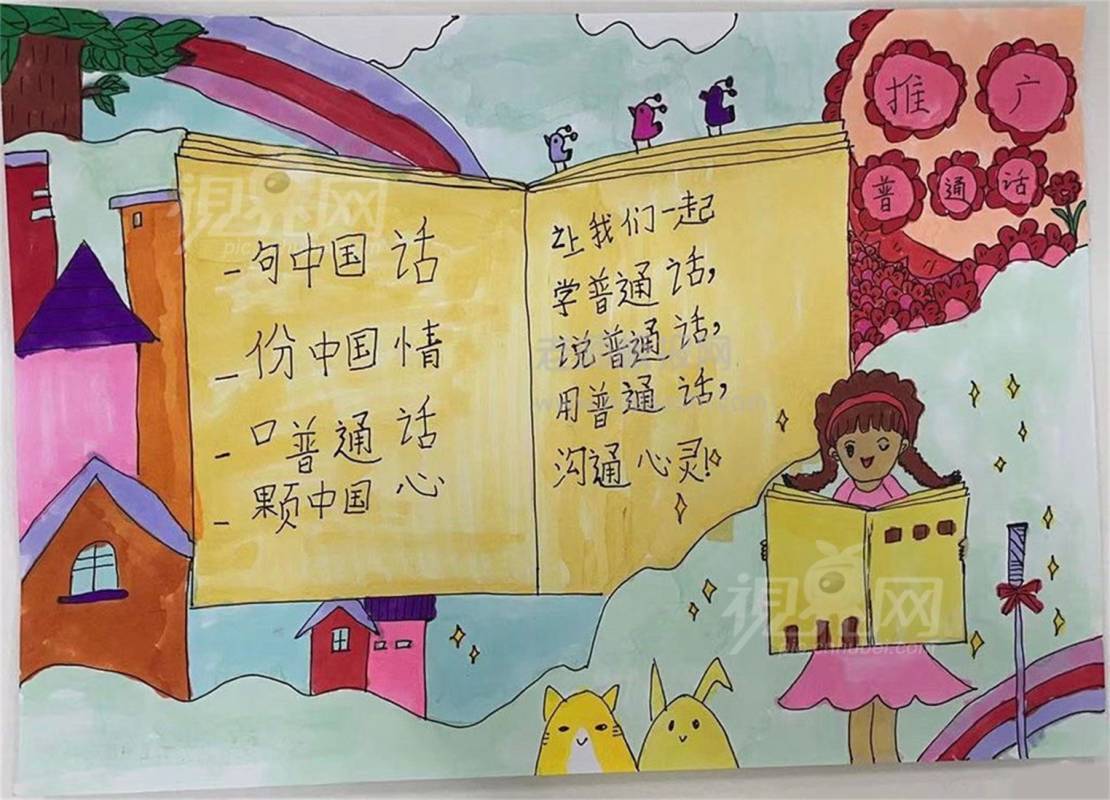 推广
普通话
一句中国话
一份中国情
一口普通话
一颗中国心
让我们一起
学普通话，
说普通话，
用普通话，
沟通心灵!
視界网
視界网